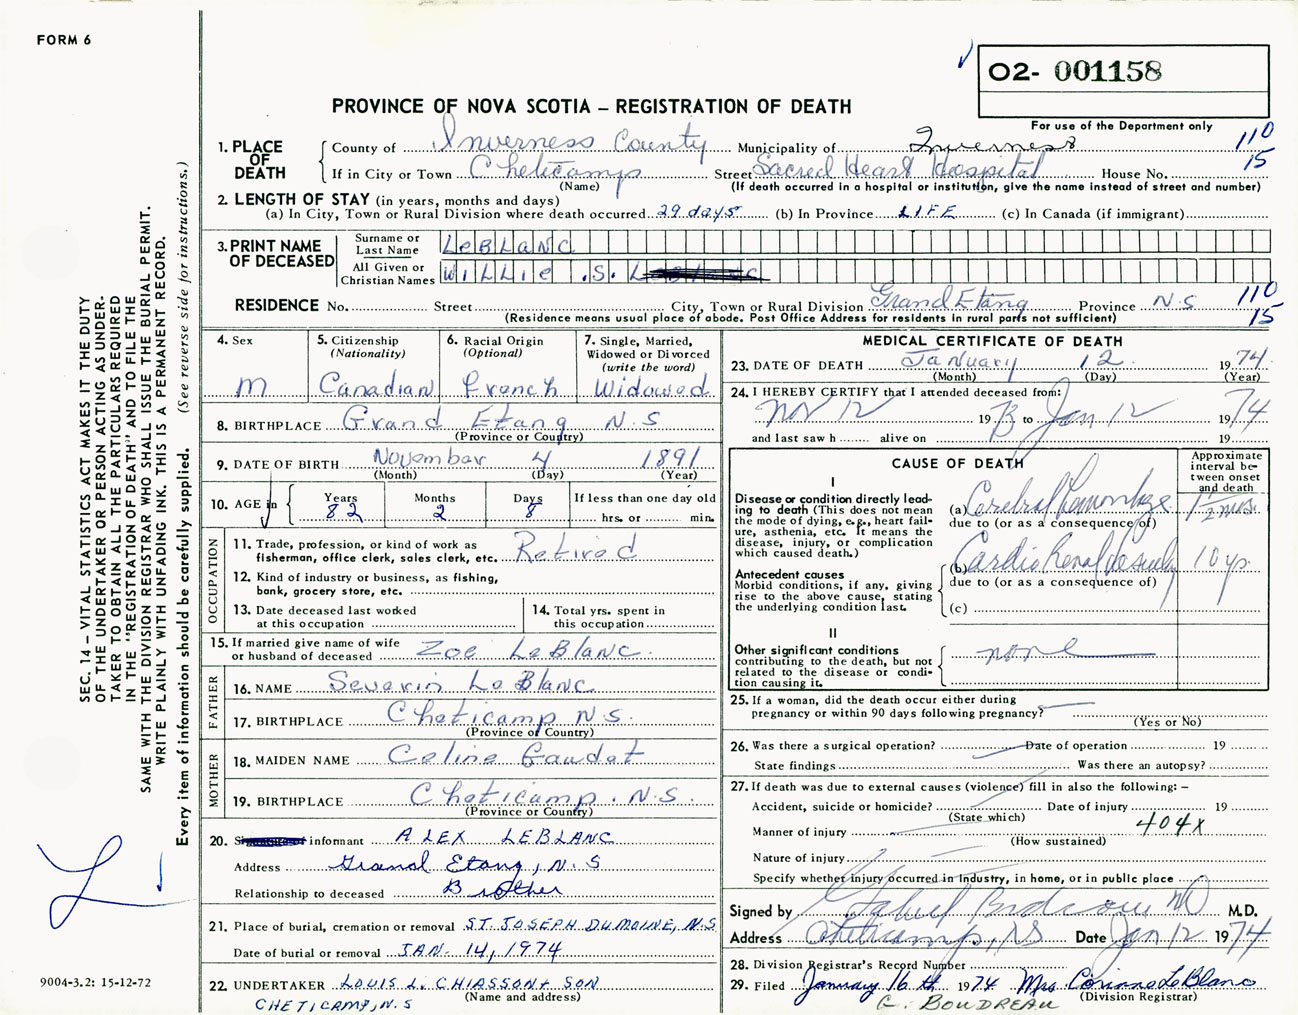 FORM 6
O2- 001158
PROVINCE OF NOVA SCOTIA – REGISTRATION OF DEATH
For use of the Department only
1. PLACE OF DEATH
County of Inverness County Municipality of Inverness 110
If in City or Town Cheticamp Street Sacred Heart Hospital House No. 15
(Name) (If death occurred in a hospital or institution, give the name instead of street and number)
2. LENGTH OF STAY (in years, months and days)
(a) In City, Town or Rural Division where death occurred 29 days (b) In Province LIFE (c) In Canada (if immigrant)
3. PRINT NAME OF DECEASED
Surname or Last Name LeBLANC
All Given or Christian Names WILLIE .S.
RESIDENCE No. Street City, Town or Rural Division Grand Etang Province N.S 110
(Residence means usual place of abode. Post Office Address for residents in rural parts not sufficient) 15
4. Sex
M
5. Citizenship (Nationality)
Canadian
6. Racial Origin (Optional)
French
7. Single, Married, Widowed or Divorced (write the word)
Widowed
8. BIRTHPLACE Grand Etang N.S
(Province or Country)
9. DATE OF BIRTH November 4 1891
(Month) (Day) (Year)
10. AGE in
Years Months Days If less than one day old
82 2 8 hrs. or min.
OCCUPATION
11. Trade, profession, or kind of work as fisherman, office clerk, sales clerk, etc. Retired
12. Kind of industry or business, as fishing, bank, grocery store, etc.
13. Date deceased last worked at this occupation
14. Total yrs. spent in this occupation
15. If married give name of wife or husband of deceased Zoe LeBlanc.
FATHER
16. NAME Severin LeBlanc
17. BIRTHPLACE Cheticamp N.S.
(Province or Country)
MOTHER
18. MAIDEN NAME Celine Gaudet
19. BIRTHPLACE Cheticamp. N.S.
(Province or Country)
20. informant ALEX LEBLANC
Address Grand Etang, N.S
Relationship to deceased Brother
21. Place of burial, cremation or removal ST. JOSEPH DU MOINE, N.S
Date of burial or removal JAN. 14, 1974
22. UNDERTAKER LOUIS L. CHIASSON + SON
(Name and address)
CHETICAMP, N.S
MEDICAL CERTIFICATE OF DEATH
23. DATE OF DEATH January 12 1974.
(Month) (Day) (Year)
24. I HEREBY CERTIFY that I attended deceased from:
Nov 12 1973 to Jan 12 1974
and last saw h alive on 19
CAUSE OF DEATH
Approximate interval between onset and death
I
Disease or condition directly leading to death (This does not mean the mode of dying, e.g., heart failure, asthenia, etc. It means the disease, injury, or complication which caused death.)
(a) Cerebral Hemorrhage
due to (or as a consequence of)
Antecedent causes
Morbid conditions, if any, giving rise to the above cause, stating the underlying condition last.
(b) Cardio Renal 10 yrs.
due to (or as a consequence of)
(c)
II
Other significant conditions contributing to the death, but not related to the disease or condition causing it.
none
25. If a woman, did the death occur either during pregnancy or within 90 days following pregnancy?
(Yes or No)
26. Was there a surgical operation? Date of operation 19
State findings Was there an autopsy?
27. If death was due to external causes (violence) fill in also the following: –
Accident, suicide or homicide? Date of injury 19
(State which)
Manner of injury 404X
(How sustained)
Nature of injury
Specify whether injury occurred in industry, in home, or in public place
Signed by MD M.D.
Address Cheticamp, NS Date Jan 12 1974
28. Division Registrar's Record Number
29. Filed January 16th 1974 Mrs. Corinne LeBlanc
(Division Registrar)
C. BOUDREAU
SEC. 14 – VITAL STATISTICS ACT MAKES IT THE DUTY
OF THE UNDERTAKER OR PERSON ACTING AS UNDER-
TAKER TO OBTAIN ALL THE PARTICULARS REQUIRED
IN THE "REGISTRATION OF DEATH" AND TO FILE THE
SAME WITH THE DIVISION REGISTRAR WHO SHALL ISSUE THE BURIAL PERMIT.
WRITE PLAINLY WITH UNFADING INK. THIS IS A PERMANENT RECORD.
Every item of information should be carefully supplied. (See reverse side for instructions.)
9004-3.2: 15-12-72